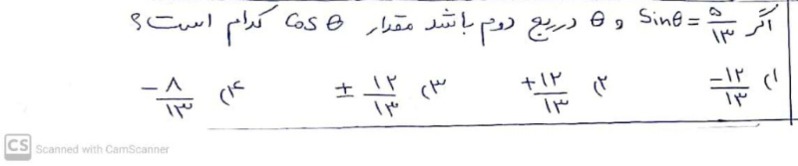 اگر Sinθ = ۵/۱۳ و θ در ربع دوم باشد مقدار Cos θ کدام است؟
۱) -۱۲/۱۳ ۲) +۱۲/۱۳ ۳) ± ۱۲/۱۳ ۴) -۸/۱۳
CS Scanned with CamScanner